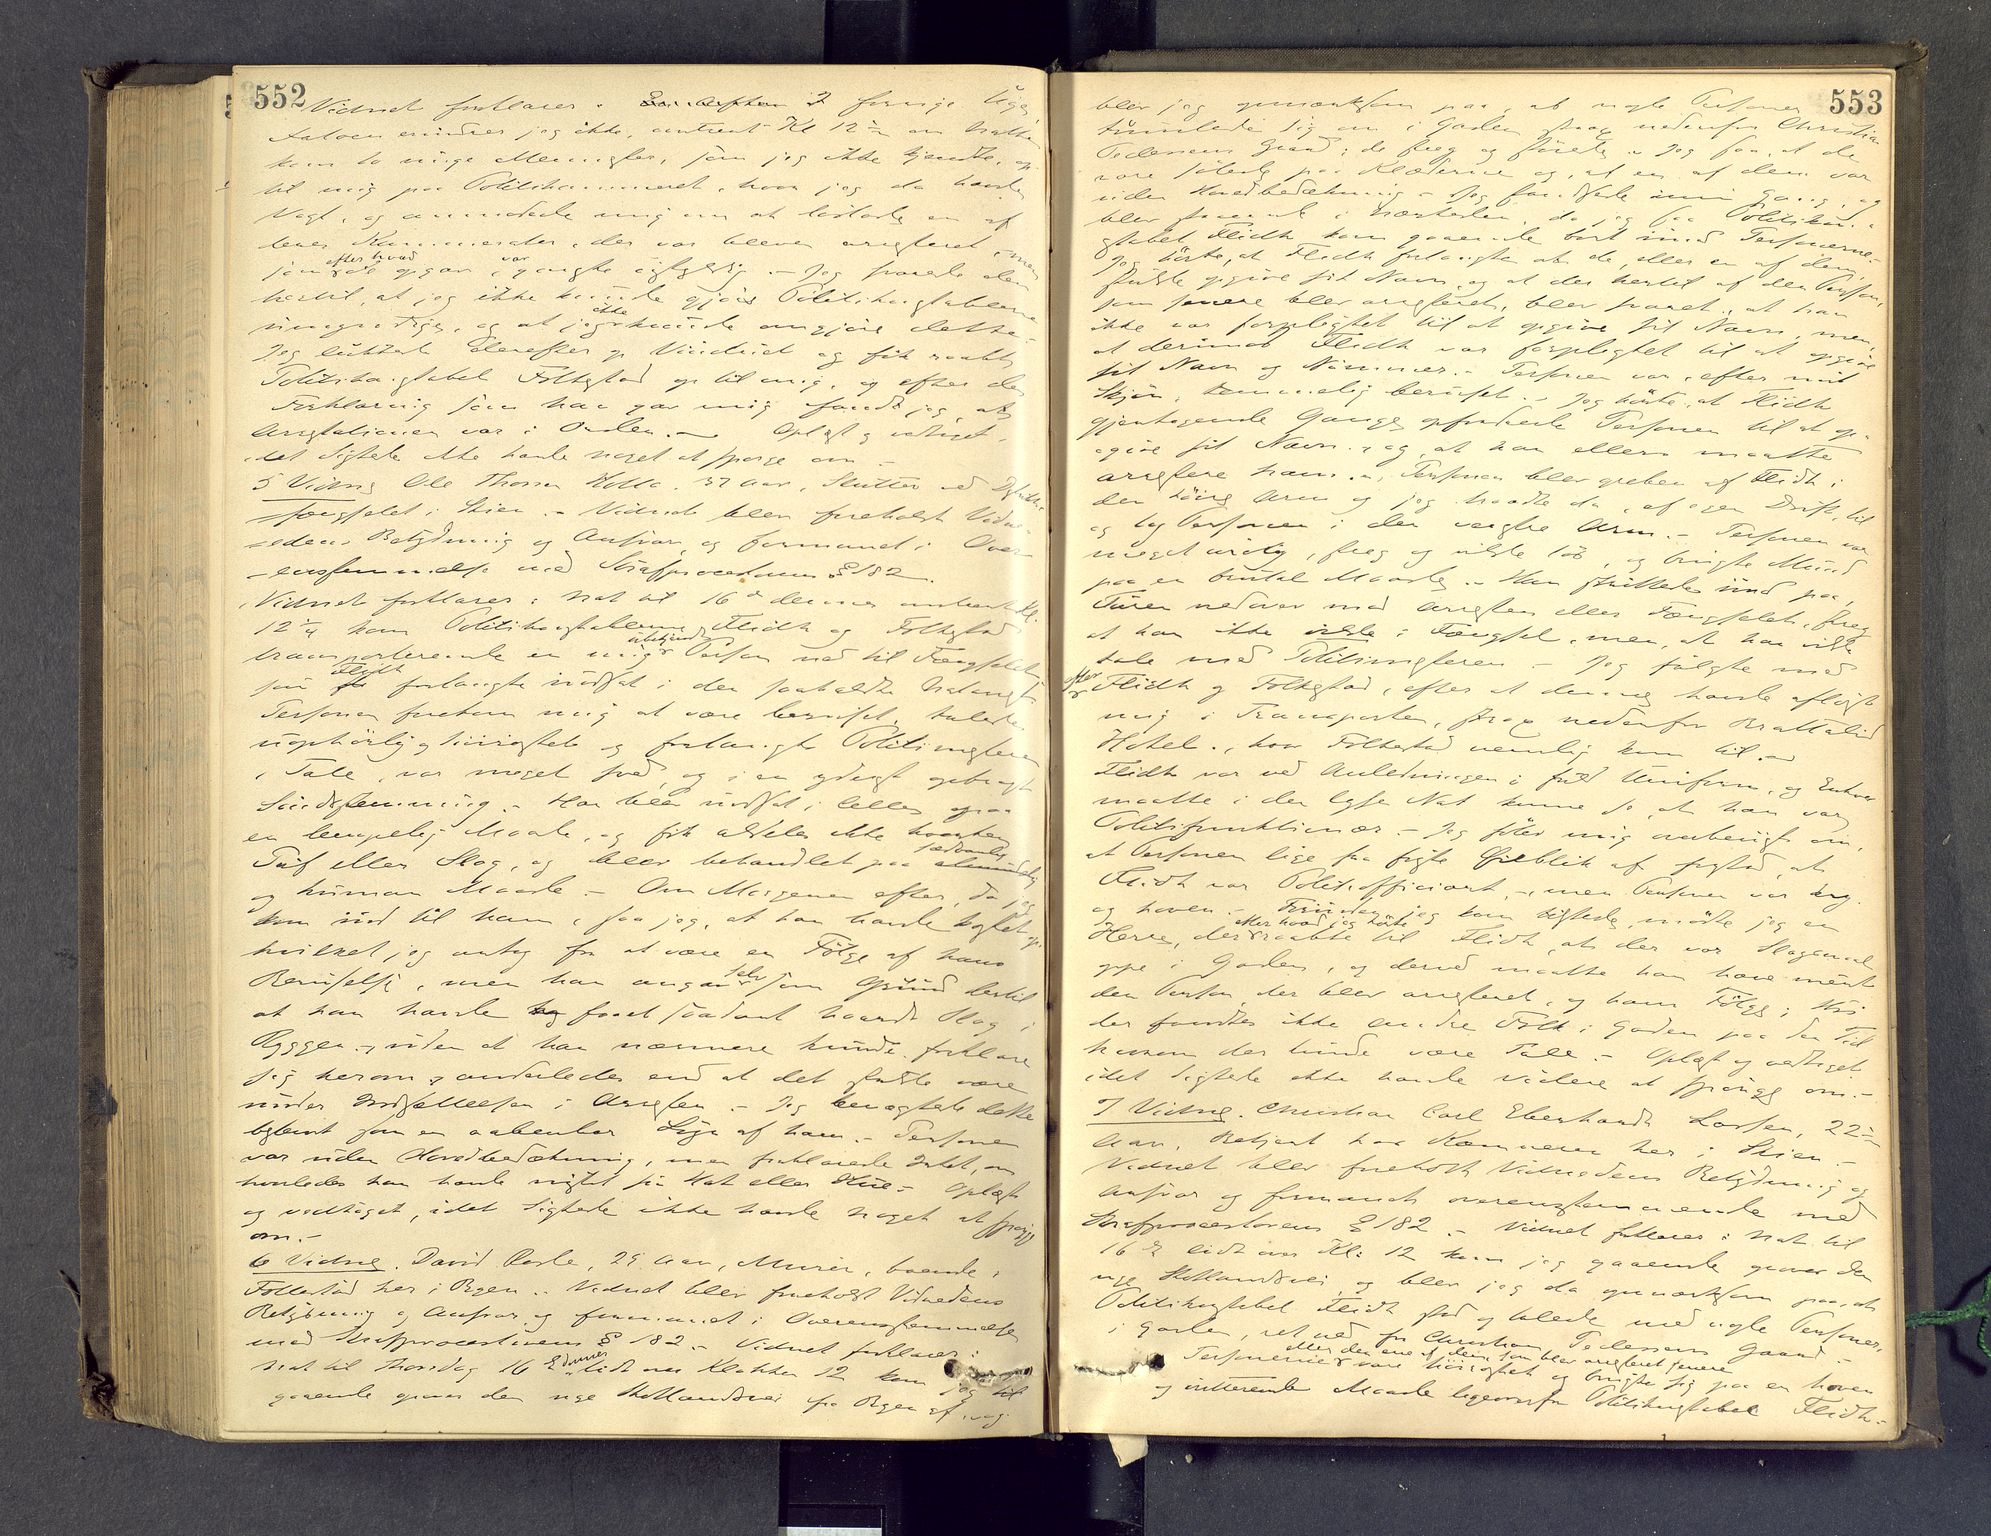 552
Vidnet forklarer: En Aften i forrige Uge,
Datoen erindrer jeg ikke, omtrent Kl 12 ½ om Natten
kom to unge Mennesker, som jeg ikke kjendte, op
til mig paa Politikammeret, hvor jeg da havde
Vagt, og anmodede mig om at løslade en af
deres Kammerater, der var bleven arresteret, men
som efter hvad de opgav var ganske uskyldig. – Jeg svarede dem
hertil, at jeg ikke kunde gjøre Politikonstablerne
umyndige, og at jeg ikke kunde omgjøre dette.
Jeg lukkede derefter op Vinduet og fik raabt
Politikonstabel Folkestad op til mig, og efter den
Forklaring som han gav mig fandt jeg, at
Arrestationen var i Orden. – Oplæst og vedtaget,
idet Sigtede ikke havde noget at spørge om. –
5 Vidne Ole Thorsen Holla, 37 Aar, Slutter ved Distrikts-
fængslet i Skien. – Vidnet blev foreholdt Vidne-
edens Betydning og Ansvar og formanet i Over-
-ensstemmelse med Strafprocesslovens § 182.
Vidnet forklarer: Nat til 16de dennes omtrent Kl.
12 ¼ kom Politikonstablerne Flidh og Folkestad
transporterende en ung ubekjendt Person ned til Fængslet,
som Flidh forlangte indsat i den saakaldte Natarrest
Personen forekom mig at være beruset, talede
uophørlig, huiede og forlangte Politimesteren
i Tale, var meget vred og i en yderst opbragt
Sindsstemning. – Han blev indsat i Cellen paa
en lempelig Maade, og fik aldeles ikke hverken
Puf eller Slag, og blev behandlet paa sædvanlig
og human Maade. – Om Morgenen efter, da jeg
kom ind til ham, saa jeg, at han havde kastet op
hvilket jeg antog for at være en Følge af hans
Beruselse, men han angav selv som Grund dertil
at han havde faaet saadant haardt Slag i
Ryggen, uden at han nærmere kunde forklare
sig herom, anderledes end at det skulde være
under Indsættelsen i Arresten. – Jeg benægtede dette
bestemt som en aabenbar Løgn af ham. – Personen
var uden Hovedbedækning, men forklarede Intet, om
hvorledes han havde mistet sin Hat eller Hue. – Oplæst
og vedtaget, idet Sigtede ikke havde noget at spørge
om. –
6 Vidne. David Aasle, 29 Aar, Murer, boende i
Follestad her i Byen. – Vidnet blev foreholdt Vidneedens
Betydning og Ansvar og formanet i Overensstemmelse
med Strafprocesslovens § 182. – Vidnet forklarer:
Nat til Thorsdag 16de dennes lidt over Klokken 12 kom jeg
gaaende over den nye Hollandsvei fra Byen af, og
553
blev jeg opmærksom paa, at nogle Personer
tumlede sig om i Gaden strax nedenfor Christian
Pedersens Gaard; de skreg og støiede. Jeg saa, at de
vare sølede paa Klæderne og, at en af dem var
uden Hovedbedækning. – Jeg fortsatte min Gang, og
blev staaende i Nærheden, da jeg saa Politikon-
stabel Flidh kom gaaende bort imod Personerne. –
Jeg hørte, at Flidh forlangte at de, eller en af dem,
skulde opgive sit Navn, og at der hertil af den Person,
som senere blev arresteret, blev svaret, at han
ikke var forpligtet til at opgive sit Navn, men,
at derimod Flidh var forpligtet til at opgive
sit Navn og Nummer. – Personen var, efter mit
Skjøn, temmelig beruset. – Jeg hørte, at Flidh
gjentagende Gange opfordrede Personen til at op-
-give sit Navn, og, at han ellers maatte
arrestere ham. – Personen blev greben af Flidh i
den høire Arm og jeg traadte da, af egen Drift, til
og tog Personen i den venstre Arm. – Personen var
meget urolig, skreg og vilde løs, og brugte Mund
paa en brutal Maade. – Han skjeldte ud paa
Turen nedover mod Arresten eller Fængslet, skreg
at han ikke vilde i Fængsel, men, at han vilde
tale med Politimesteren. – Jeg fulgte med
Flidh og Folkestad, efter at denne havde afløst
mig i Transporten, strax nedenfor Brattalid
Hotel, hvor Folkestad nemlig kom til. –
Flidh var ved Anledningen i fuld Uniform, og Enhver
maatte i den lyse Nat kunne se, at han var
Politifunktionær. – Jeg føler mig overbevist om,
at Personen lige fra første Øieblik af forstod, at
Flidh var Politiofficiant, men Personen var
og hoven. – Førend jeg kom tilstede, mødte jeg en
Herre, der efter hvad jeg hørte raabte til Flidh, at der var Slagsmaal
oppe i Gaden, og derved maatte han have ment
den Person, der blev arresteret, og hans Følge;
der fandtes ikke andre Folk i Gaden paa den Tid
hvorom der kunde være Tale. – Oplæst og vedtaget
idet Sigtede ikke havde videre at spørge om. –
7 Vidne. Christian Carl Eberhardt Larsen, 22 ½
Aar, Betjent hos Kæmneren her i Skien. –
Vidnet blev foreholdt Vidneedens Betydning og
Ansvar og formanet overensstemmende med
Strafprocesslovens § 182. – Vidnet forklarer: Nat til
16de lidt over Kl: 12 kom jeg gaaende over den
nye Hollandsvei, og blev jeg da opmærksom paa, at
Politikonstabel Flidh stod og talede med nogle Personer
i Gaden, ret ned for Christian Pedersens Gaard –
Personerne eller den ene af dem, som blev arresteret senere vare høirøstet og brugte sig paa en hoven
og irriterende Maade ligeoverfor Politikonstabel Flidh. –